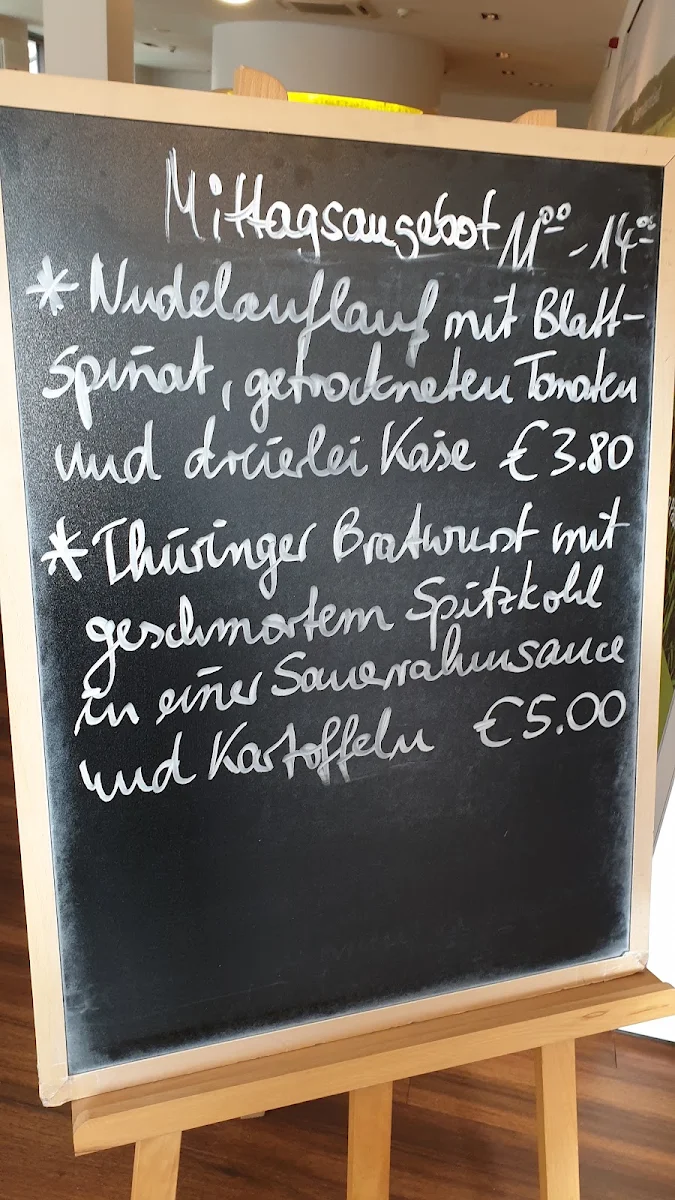 Mittagsangebot 11⁰⁰ - 14⁰⁰
* Nudelauflauf mit Blatt-
Spinat, getrockneten Tomaten
und dreierlei Käse €3.80
* Thüringer Bratwurst mit
geschmortem Spitzkohl
in einer Sauerrahmsauce
und Kartoffeln €5.00